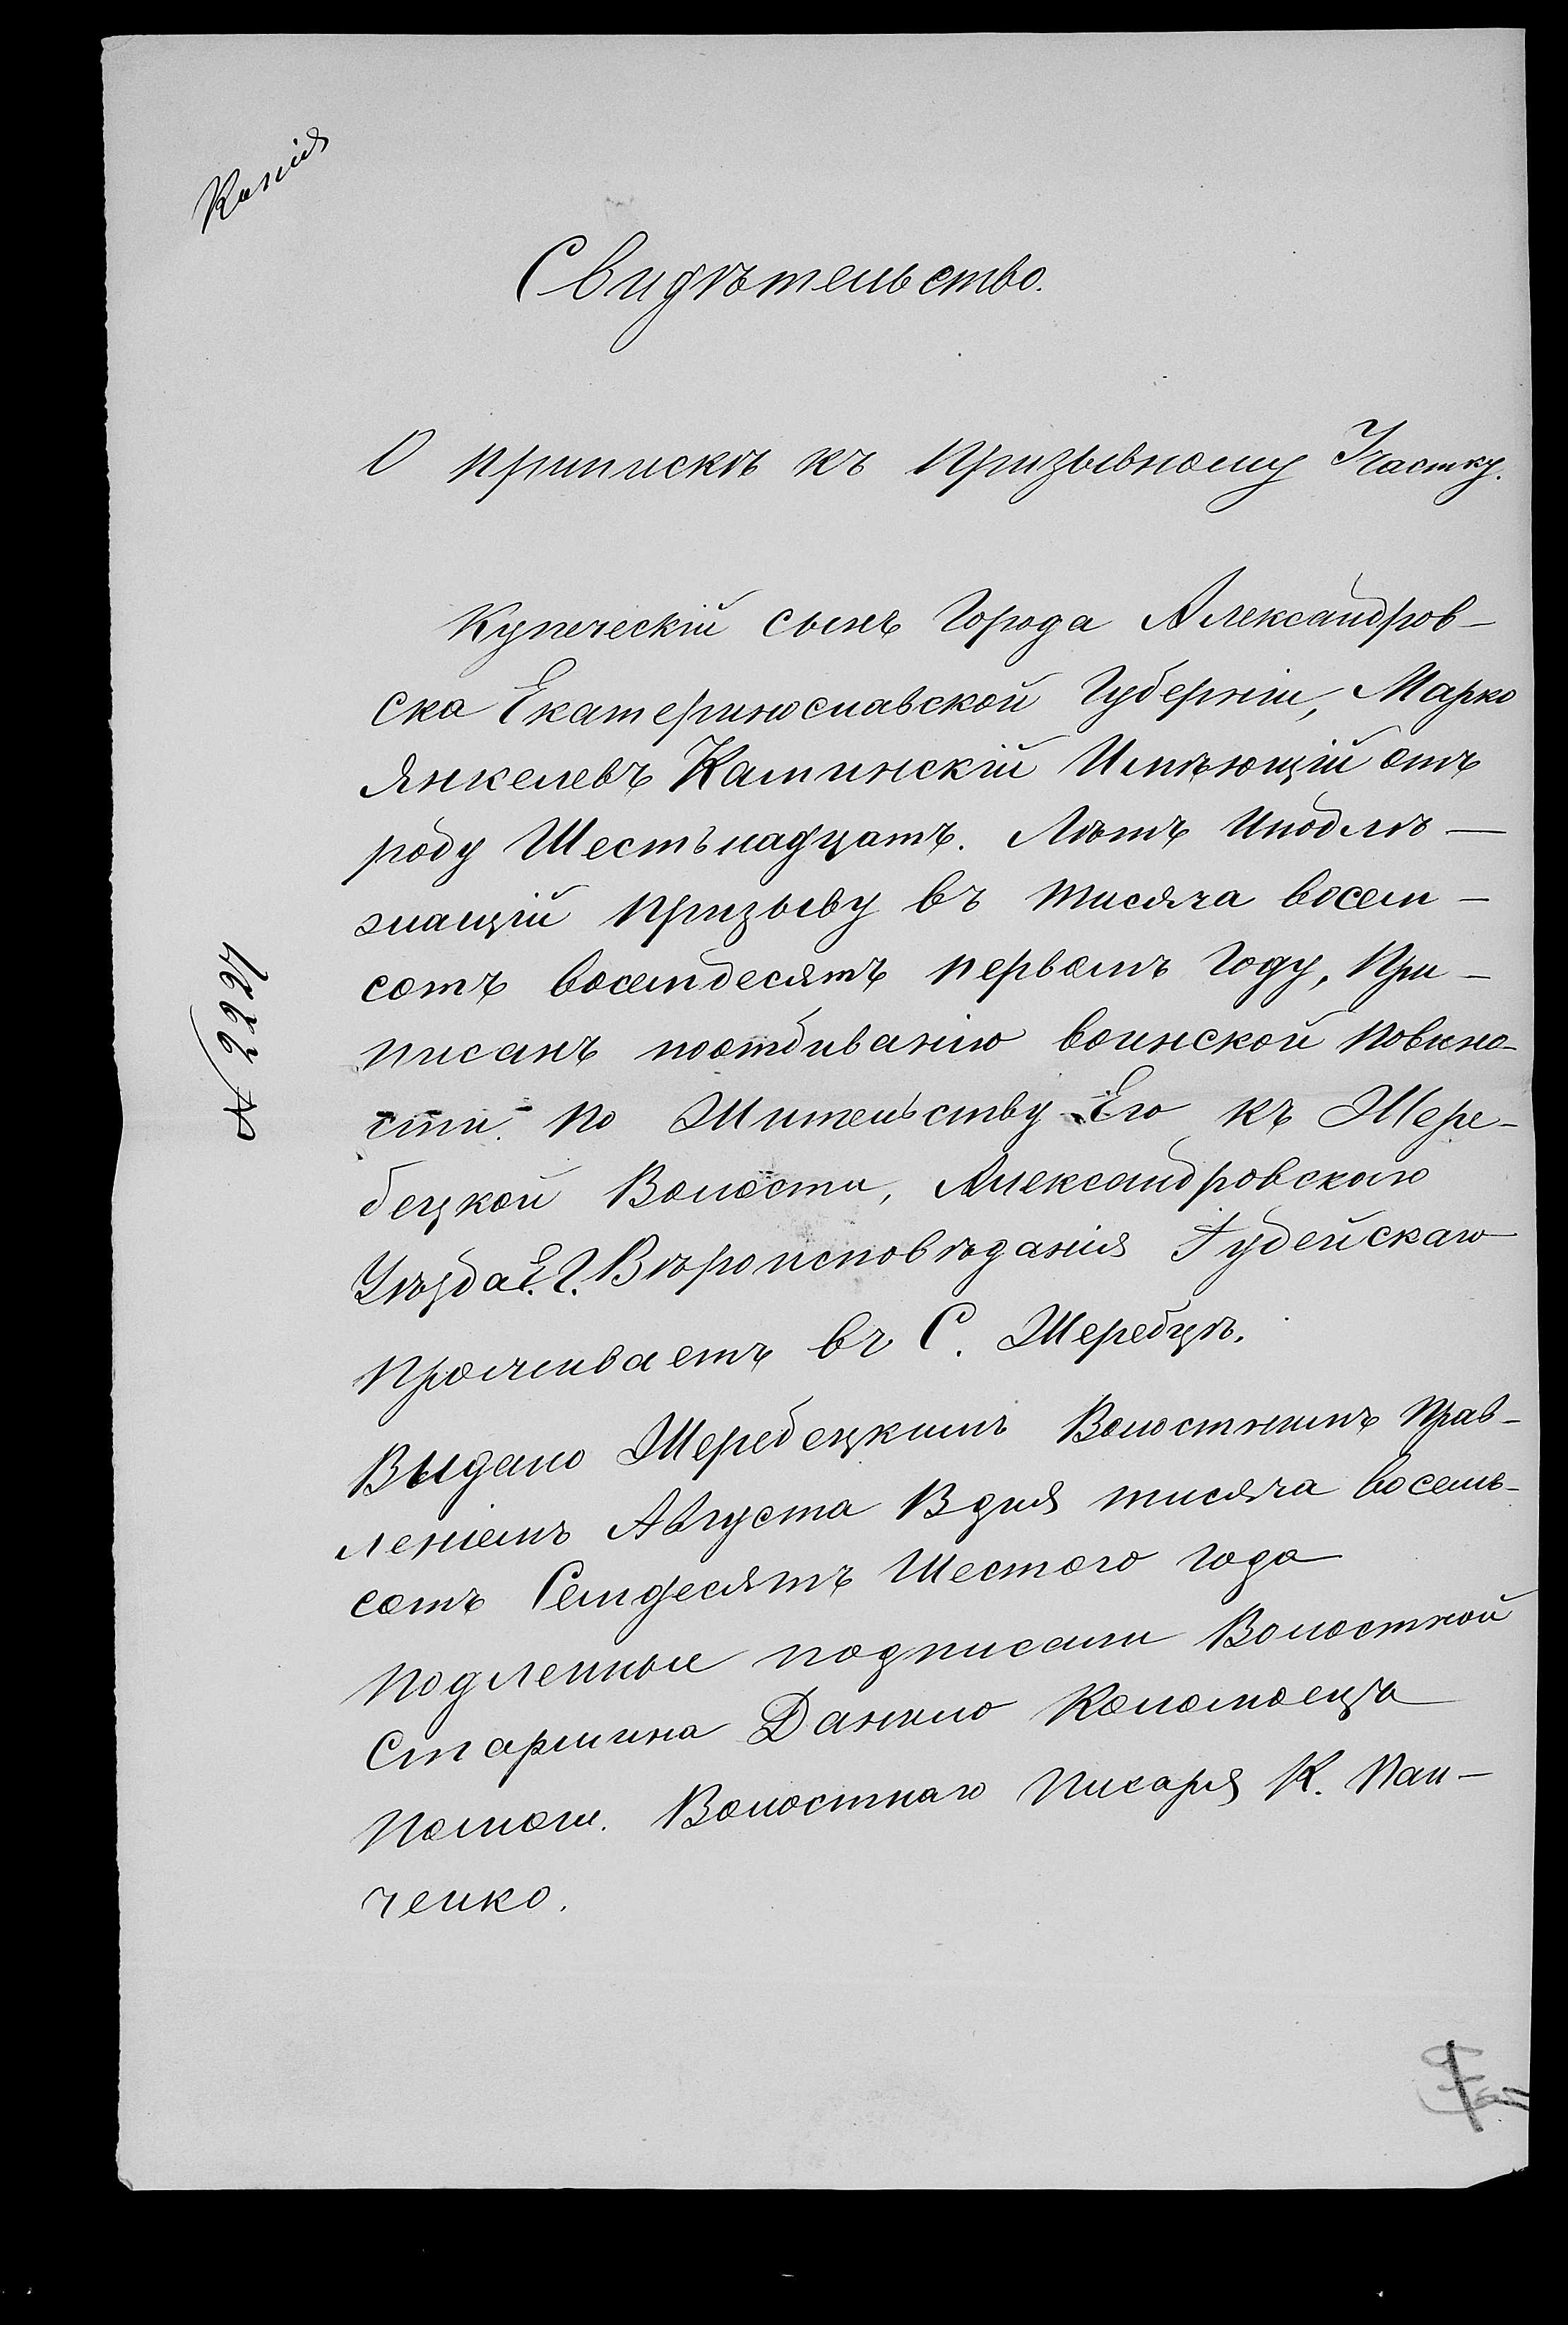 Копія
Свидѣтельство.
О припискѣ къ призывному Участку.
Купеческій сынъ города Александров-
ска Екатеринославской Губерніи, Марко
Янкелевъ Каминскій Имѣющій отъ
роду Шестьнадцать. Лѣтъ Иподлѣ-
жащій призыву въ тисяча восем-
сотъ восемдесятъ первомъ году, При-
писанъ поотбиванію воинской повино-
сти. по Жительству Его къ Жере-
бецкой Волости, Александровскаго
Уѣзда Е. Г. Вѣроисповѣданія Іудейскаго
проживаетъ въ С. Жеребцѣ.
Выдано Жеребецкимъ Волостнимъ прав-
леніемъ Августа В дня тисяча восемь-
сотъ Семдесятъ Шестого года
подленные подписали Волостной
Старшина Данило Коломоецъ
помощ. Волостнаго Писаря К. Пан-
ченко.
№ 2227